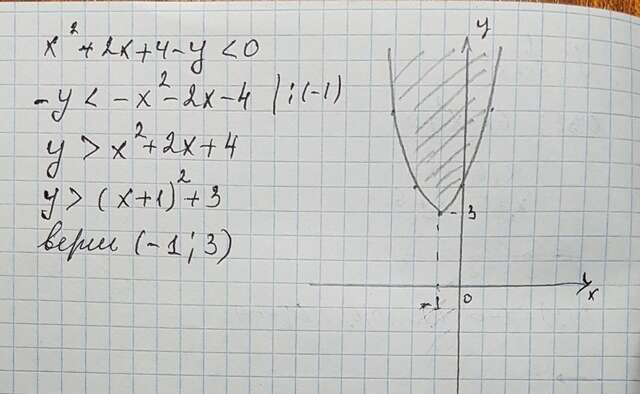 x²+2x+4-y<0
-y < -x²-2x-4 | :(-1)
y > x²+2x+4
y > (x+1)²+3
верш (-1; 3)
y
3
-1 0 x